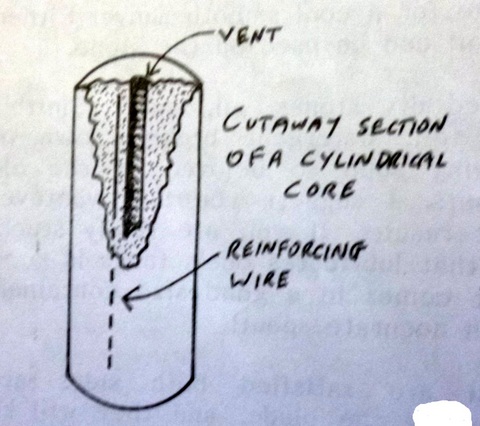 VENT
CUTAWAY SECTION
OF A CYLINDRICAL
CORE
REINFORCING
WIRE